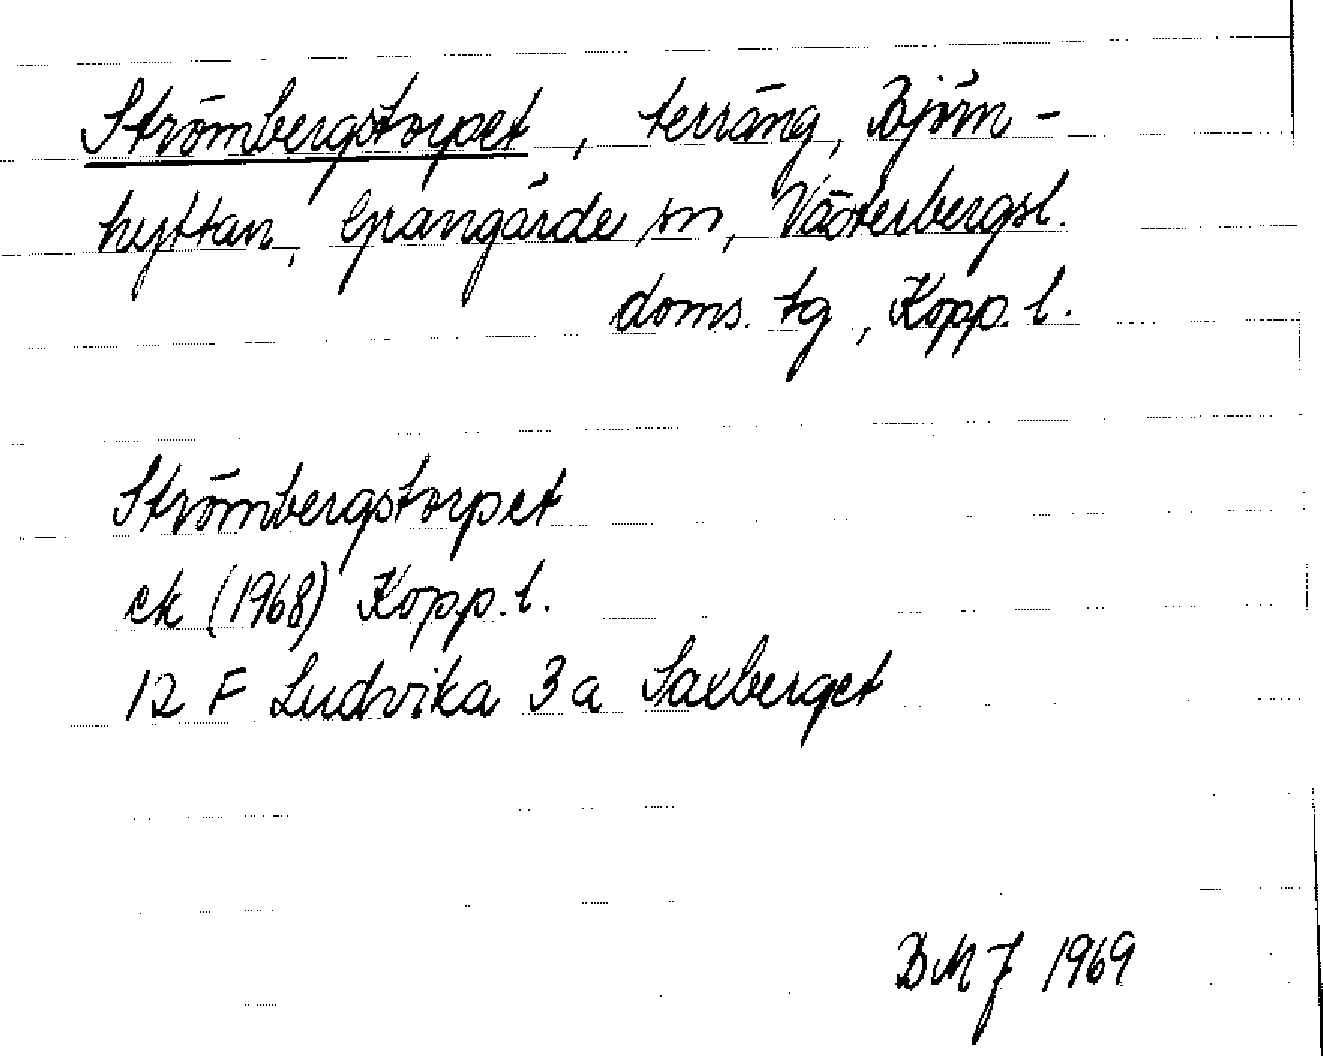 Strömbergstorpet, terräng, Björn-
hyttan, Grangärde sn, Västerbergsl.
doms. tg, Kopp. l.
Strömbergstorpet
ek (1968) Kopp. l.
12 F Ludvika 3 a Saxberget
BMJ 1969